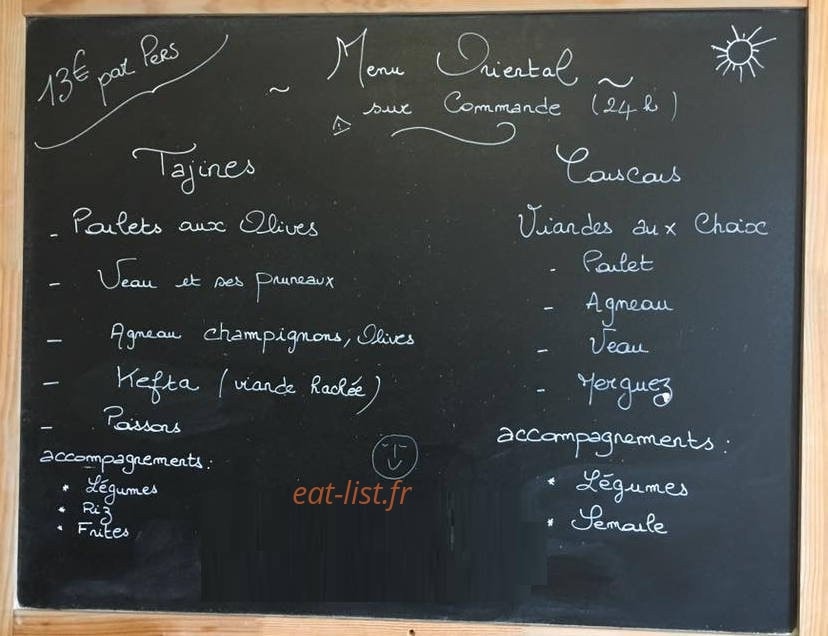 13€ par Pers
~ Menu Oriental ~
⚠ sur Commande (24 h)
Tajines
- Poulets aux Olives
- Veau et ses pruneaux
- Agneau champignons, Olives
- Kefta (viande hachée)
- Poissons
accompagnements :
* Légumes
* Riz
* Frites
Couscous
Viandes aux Choix
- Poulet
- Agneau
- Veau
- Merguez
accompagnements :
* Légumes
* Semoule
eat-list.fr